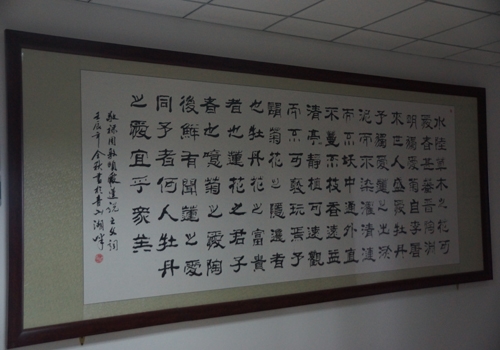 水陸草木之花可
愛者甚蕃晉陶淵
明獨愛菊自李唐
來世人盛愛牡丹
予獨愛蓮之出淤
泥而不染濯清漣
而不妖中通外直
不蔓不枝香遠益
清亭靜植可遠觀
而不可褻玩焉予
謂菊花之隱逸者
也牡丹花之富貴
者也蓮花之君子
者也噫菊之愛陶
後鮮有聞蓮之愛
同予者何人牡丹
之愛宜乎眾矣
敬錄周敦頤愛蓮說之文詞
壬辰年金秋書於青山湖畔